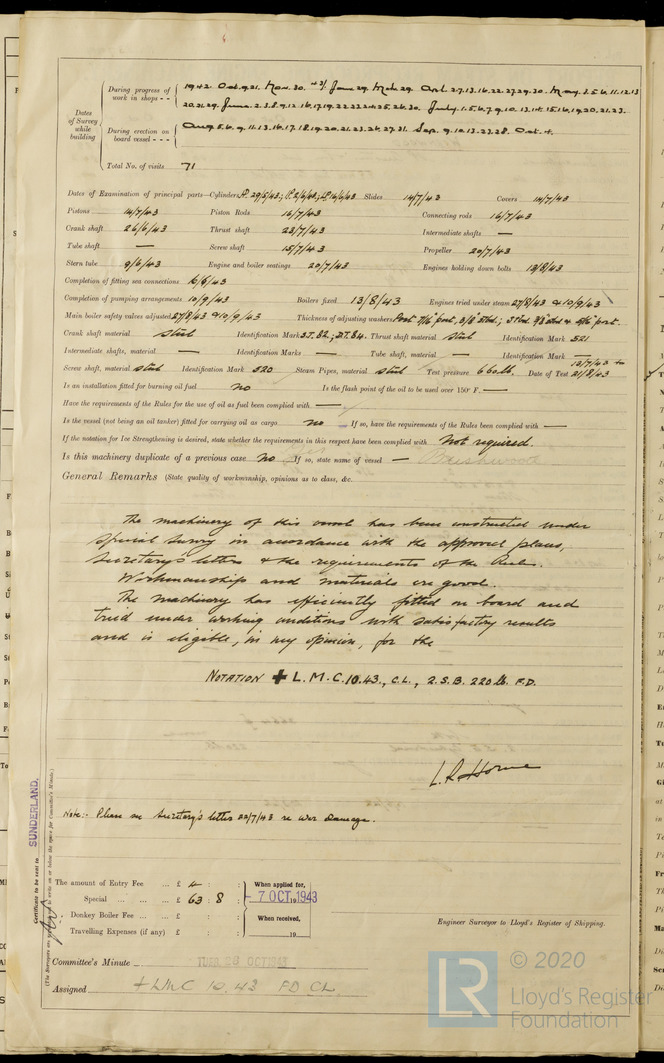 Dates of Survey while building
During progress of work in shops - -
1942 Oct. 9. 21. Nov. 30. June 29. April. 2. 7. 13. 16. 22. 27. 29. 30. May. 3. 5. 6. 11. 12. 13
20. 21. 29. June. 2. 3. 8. 9. 12. 16. 17. 19. 22. 23. 24. 25. 26. 30. July. 1. 5. 6. 7. 9. 10. 13. 14. 15. 16. 19. 20. 21. 23.
During erection on board vessel - - -
Aug 5. 6. 9. 11. 13. 16. 17. 18. 19. 20. 21. 23. 26. 27. 31. Sep. 9. 10. 13. 23. 28. Oct. 4.
Total No. of visits 71
Dates of Examination of principal parts—Cylinders Slides 14/7/43 Covers 14/7/43
Pistons 14/7/43 Piston Rods 16/7/43 Connecting rods 16/7/43
Crank shaft 26/6/43 Thrust shaft 23/7/43 Intermediate shafts —
Tube shaft — Screw shaft 15/7/43 Propeller 20/7/43
Stern tube 9/6/43 Engine and boiler seatings 20/7/43 Engines holding down bolts 13/8/43
Completion of fitting sea connections 10/6/43
Completion of pumping arrangements 10/9/43 Boilers fixed 13/8/43 Engines tried under steam 27/8/43 & 10/9/43
Main boiler safety valves adjusted 27/8/43 & 10/9/43 Thickness of adjusting washers
Crank shaft material Steel Identification Mark Thrust shaft material Steel Identification Mark 521
Intermediate shafts, material — Identification Marks — Tube shaft, material — Identification Mark —
Screw shaft, material Steel Identification Mark 520 Steam Pipes, material Steel Test pressure 660 lb. Date of Test 12/7/43 to 21/8/43
Is an installation fitted for burning oil fuel no Is the flash point of the oil to be used over 150° F. —
Have the requirements of the Rules for the use of oil as fuel been complied with —
Is the vessel (not being an oil tanker) fitted for carrying oil as cargo no If so, have the requirements of the Rules been complied with —
If the notation for Ice Strengthening is desired, state whether the requirements in this respect have been complied with Not required.
Is this machinery duplicate of a previous case No If so, state name of vessel —
General Remarks (State quality of workmanship, opinions as to class, &c.
The machinery of this vessel has been constructed under
special survey in accordance with the approved plans,
Secretary's letters & the requirements of the Rules.
Workmanship and materials are good.
The machinery has efficiently fitted on board and
tried under working conditions with satisfactory results
and is eligible, in my opinion, for the
NOTATION + L.M.C. 10.43., C.L., 2.S.B. 220 lb. F.D.
L. R. Horne
Note:- Please see Secretary's letter 22/7/43 re War Damage.
Certificate to be sent to SUNDERLAND.
(The Surveyors are requested not to write on or below the space for Committee's Minute.)
The amount of Entry Fee ... £ : :
Special ... ... ... £ 63 : 8 :
Donkey Boiler Fee ... ... £ : :
Travelling Expenses (if any) £ : :
When applied for,
7 OCT 1943
When received,
19
Engineer Surveyor to Lloyd's Register of Shipping.
Committee's Minute TUES. 26 OCT 1943
Assigned + LMC 10.43 FD CL
LR
© 2020
Lloyd's Register
Foundation